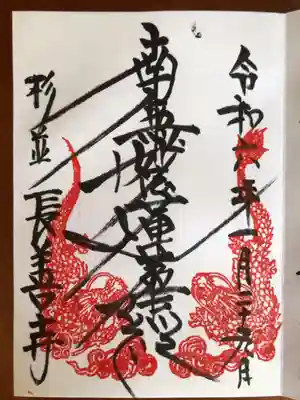 令和六年一月二十五日
南無妙法蓮華経
杉並 長善寺